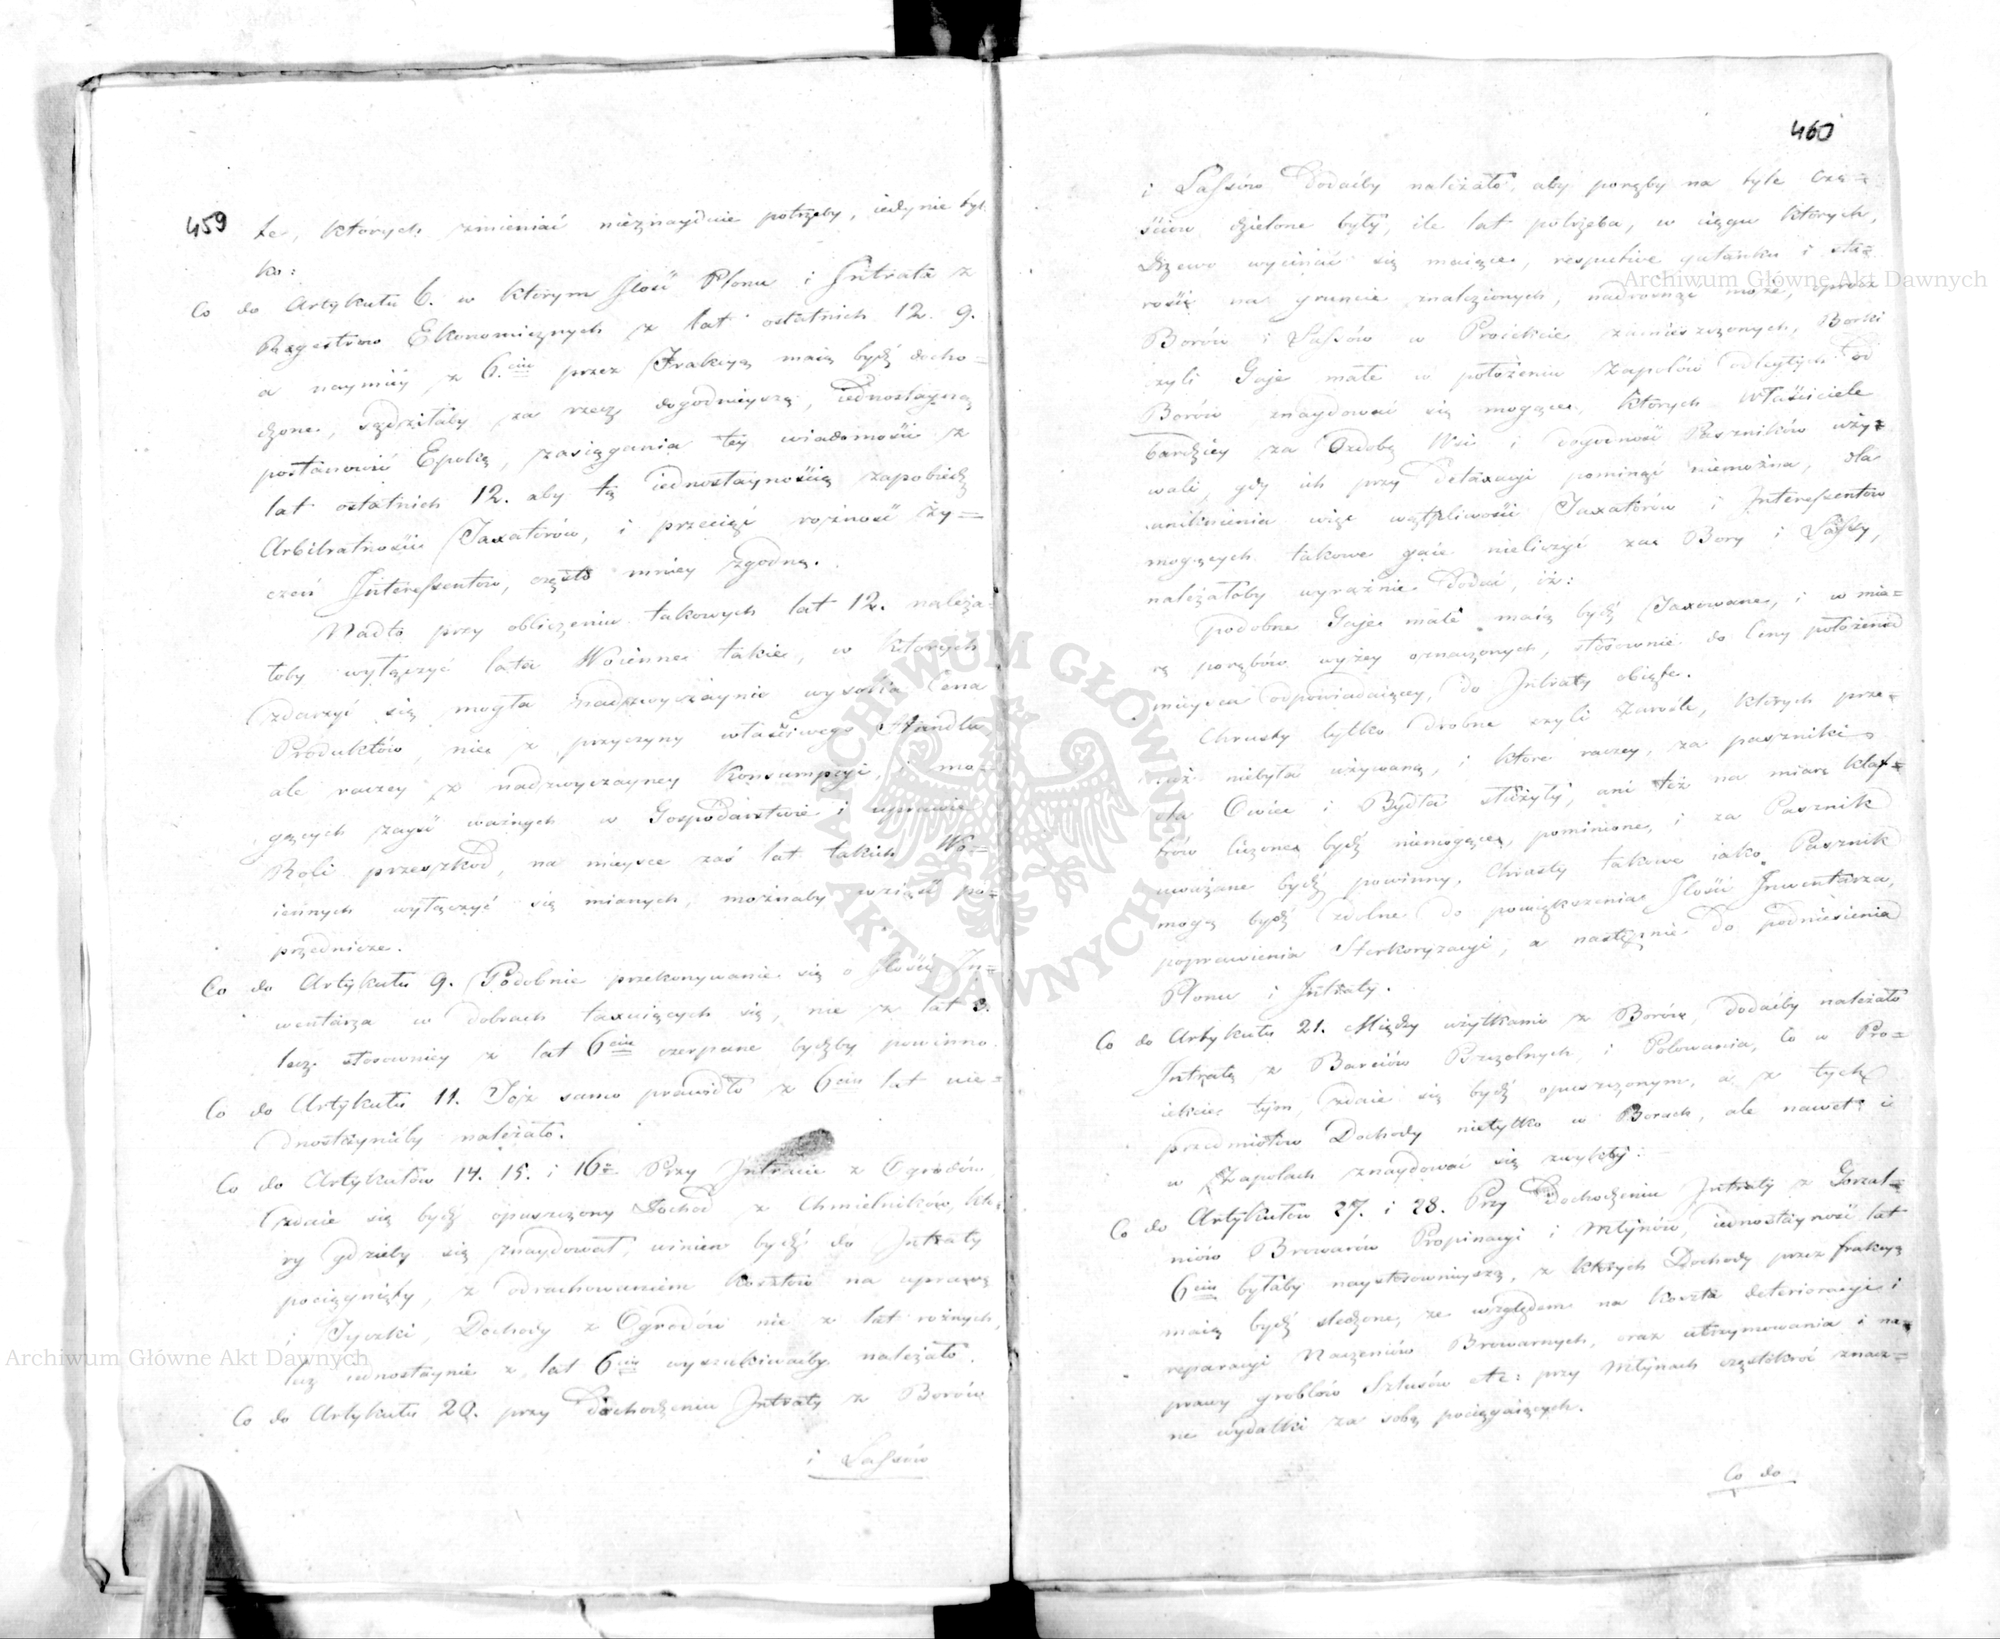 459
że, których zmieniać nieznayduie potrzeby, iedynie tyl-
ko:
Co do Artykułu 6. w którym Ilość Plonu i Intrata z
Regestrów Ekonomicznych z lat ostatnich 12. 9.
a naymniey z 6.ciu przez Frakcyą maią bydź docho=
dzone, sądziłaby za rzecz dogodnieyszą, iednostayną
postanowić Epokę, zasięgania tey wiadomości z
lat ostatnich 12. aby tą iednostaynością zapobiedz
Arbitralności Taxatorów, i przeciąć rożność ży=
czeń Interessentów, często mniey zgodną.
Nadto przy obliczeniu takowych lat 12. należa-
łoby wyłączyć lata Woienne takie, w których
zdarzyć się mogła nadzwyczaynie wysoka Cena
Produktów, nie z przyczyny właściwego Handlu
ale raczey z nadzwyczayney Konsumpcyi, i mo-
gących zayść ważnych w Gospodarstwie i uprawie
Roli przeszkód, na mieysce zaś lat takich Wo=
iennych wyłączyć się mianych, możnaby wziąść po=
przednicze.
Co do Artykułu 9. Podobnie przekonywanie się o Ilości In=
wentarza w dobrach taxuiących się, nie z lat 3.
lecz stosowniey z lat 6ciu czerpane bydźby powinno.
Co do Artykułu 11. Toż samo prawidło z 6ciu lat uie=
dnostaynićby należało.
Co do Artykułów 14. 15. i 16= Przy Intracie z Ogrodów
zdaie się bydź opuszczony Dochod z Chmielników, któ-
ry gdzieby się znaydował, winien bydź do Intraty
pociągnięty, z odrachowaniem kosztów na uprawę
i Tyczki, Dochody z Ogrodów nie z lat rożnych,
lecz iednostaynie z lat 6ciu wyszukiwaćby należało.
Co do Artykułu 20. przy dochodzeniu Intraty z Borów
i Lassów
460
i Lassów dodaćby należało, aby poręby na tyle czę=
ściów dzielone były, ile lat potrzeba, w ciągu których,
Drzewo wycinać się maiące, respective gatunku i sta=
rości na gruncie znalezionych, nadrosnąć może, oprócz
Borów i Lassów w Proiekcie zamieszczonych, Borki
czyli Gaje małe w położeniu Zapolów odległych od
Borów znaydować się mogące, których Właściciele
bardziey za Ozdobę Wsi i dogodność Paszników uży=
wali, gdy ich przy Detaxacyi pominąć niemożna, dla
uniknienia więc wątpliwości Taxatorów i Interessentów
mogących takowe gaie nieliczyć za Bory i Lassy,
należałoby wyraźnie dodać, iż:
podobne Gaje małe maią bydź Taxowane, i w mia=
rę porębów wyżey oznaczonych, stosownie do Ceny położeniu
mieysca odpowiadaiącey, do Intraty obięte.
Chrusty tylko drobne czyli zarośle, których prze=
daż niebyła używaną, i które raczey, za paszniki
dla Owiec i Bydła służyły, ani też na miarę klaf=
trów liczone bydź niemogące, pominione, i za Pasznik
uważane bydź powinny. Chrusty takowe iako Pasznik
mogą bydź zdolne do powiększenia Ilości Inwentarza,
poprawienia Sterkoryzacyi, a następnie do podniesienia
Plonu i Intraty.
Co do Artykułu 21. Między użytkami z Borów, dodaćby należało
Intratę z Barciów Pszczolnych, i Polowania, Co w Pro=
iekcie tym, zdaie się bydź opuszczonym, a z tych
przedmiotów Dochody nietylko w Borach, ale nawet i
w Zapolach znaydować się zwykły.
Co do Artykułów 27. i 28. Przy Dochodzeniu Intraty z Gorzal=
niów Browarów Propinacyi i Młynów, iednostayność lat
6ciu byłaby naystosownieyszą, z których Dochody przez frakcyą
maią bydź śledzone, ze względem na koszta deterioracyi i
reparacyi Naczeniów Browarnych, oraz utrzymowania i na=
prawy groblów Szlusów etc: przy Młynach częstokroć znacz=
ne wydatki za sobą pociągaiących.
Co do
Archiwum Główne Akt Dawnych
Archiwum Główne Akt Dawnych
ARCHIWUM GŁÓWNE AKT DAWNYCH